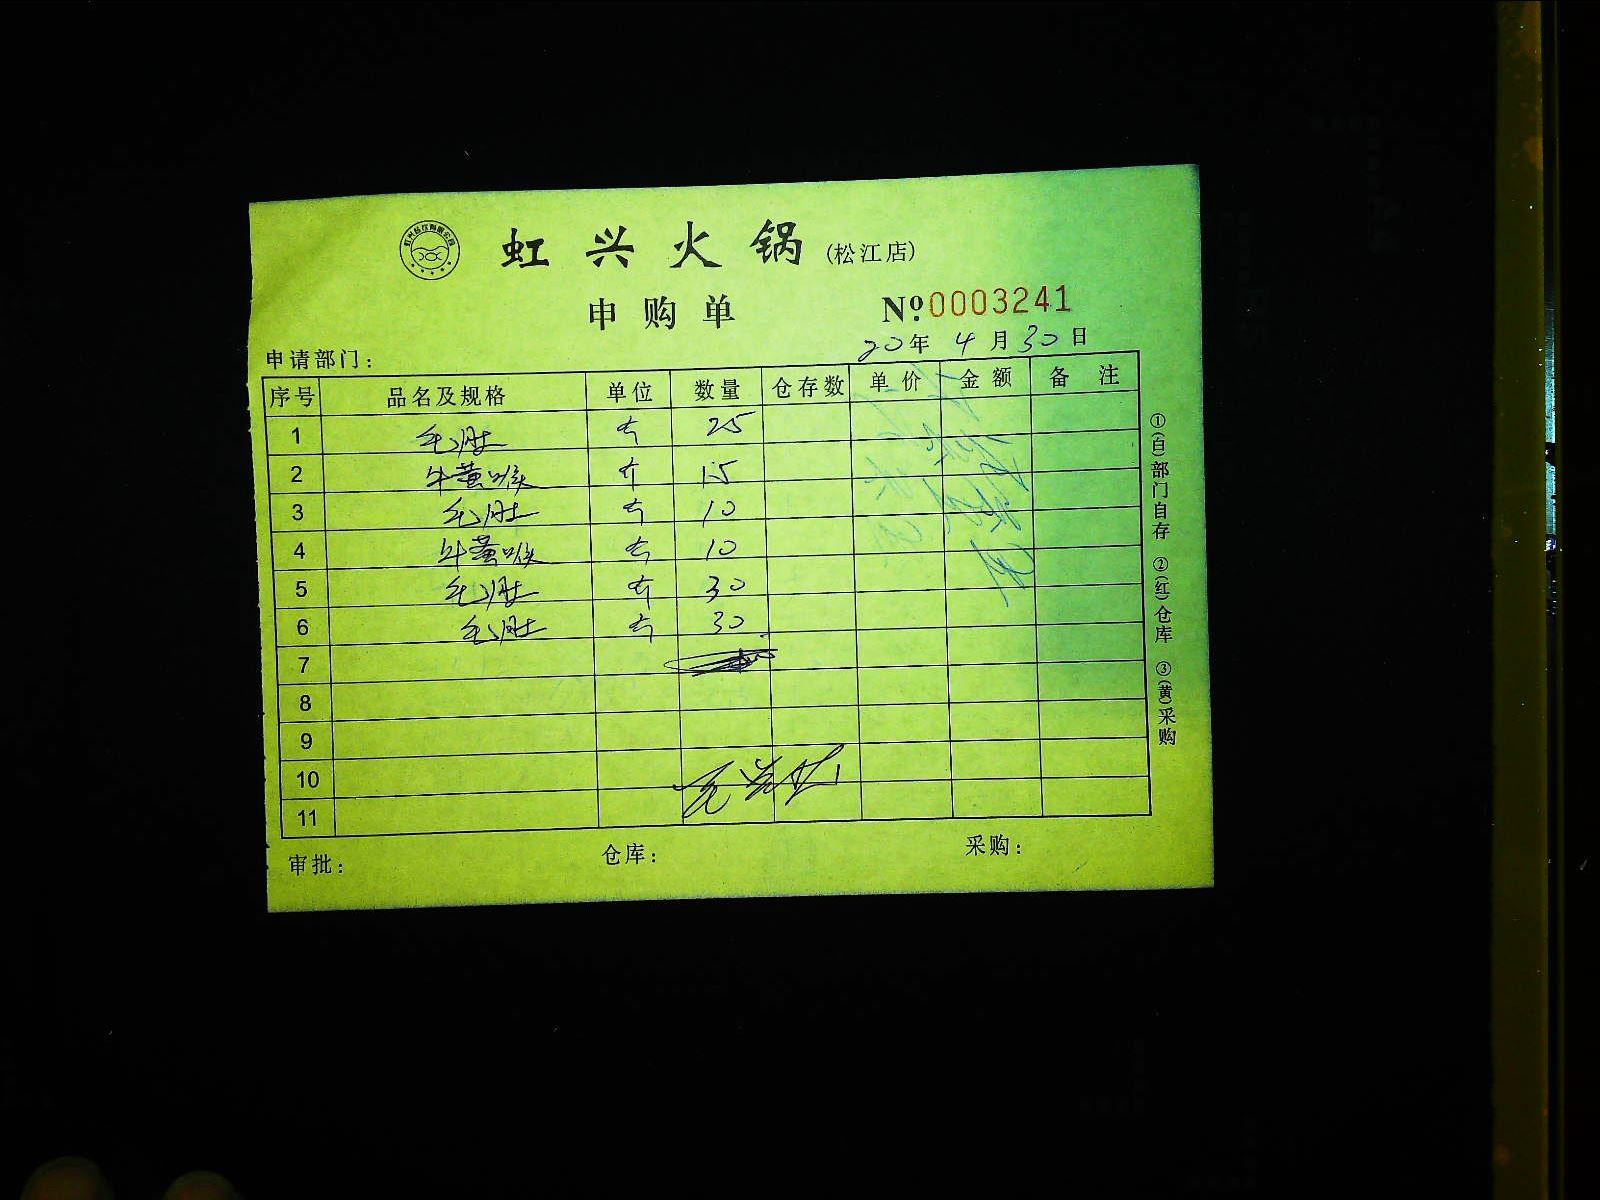 虹兴火锅(松江店)
申购单 Nº 0003241
20年 4月 30日
申请部门:
序号 品名及规格 单位 数量 仓存数 单价 金额 备注
1 毛肚 25
2 牛黄喉 15
3 毛肚 10
4 牛黄喉 10
5 毛肚 30
6 毛肚 30
7
8
9
10
11
审批: 仓库: 采购:
①(白)部门自存 ②(红)仓库 ③(黄)采购